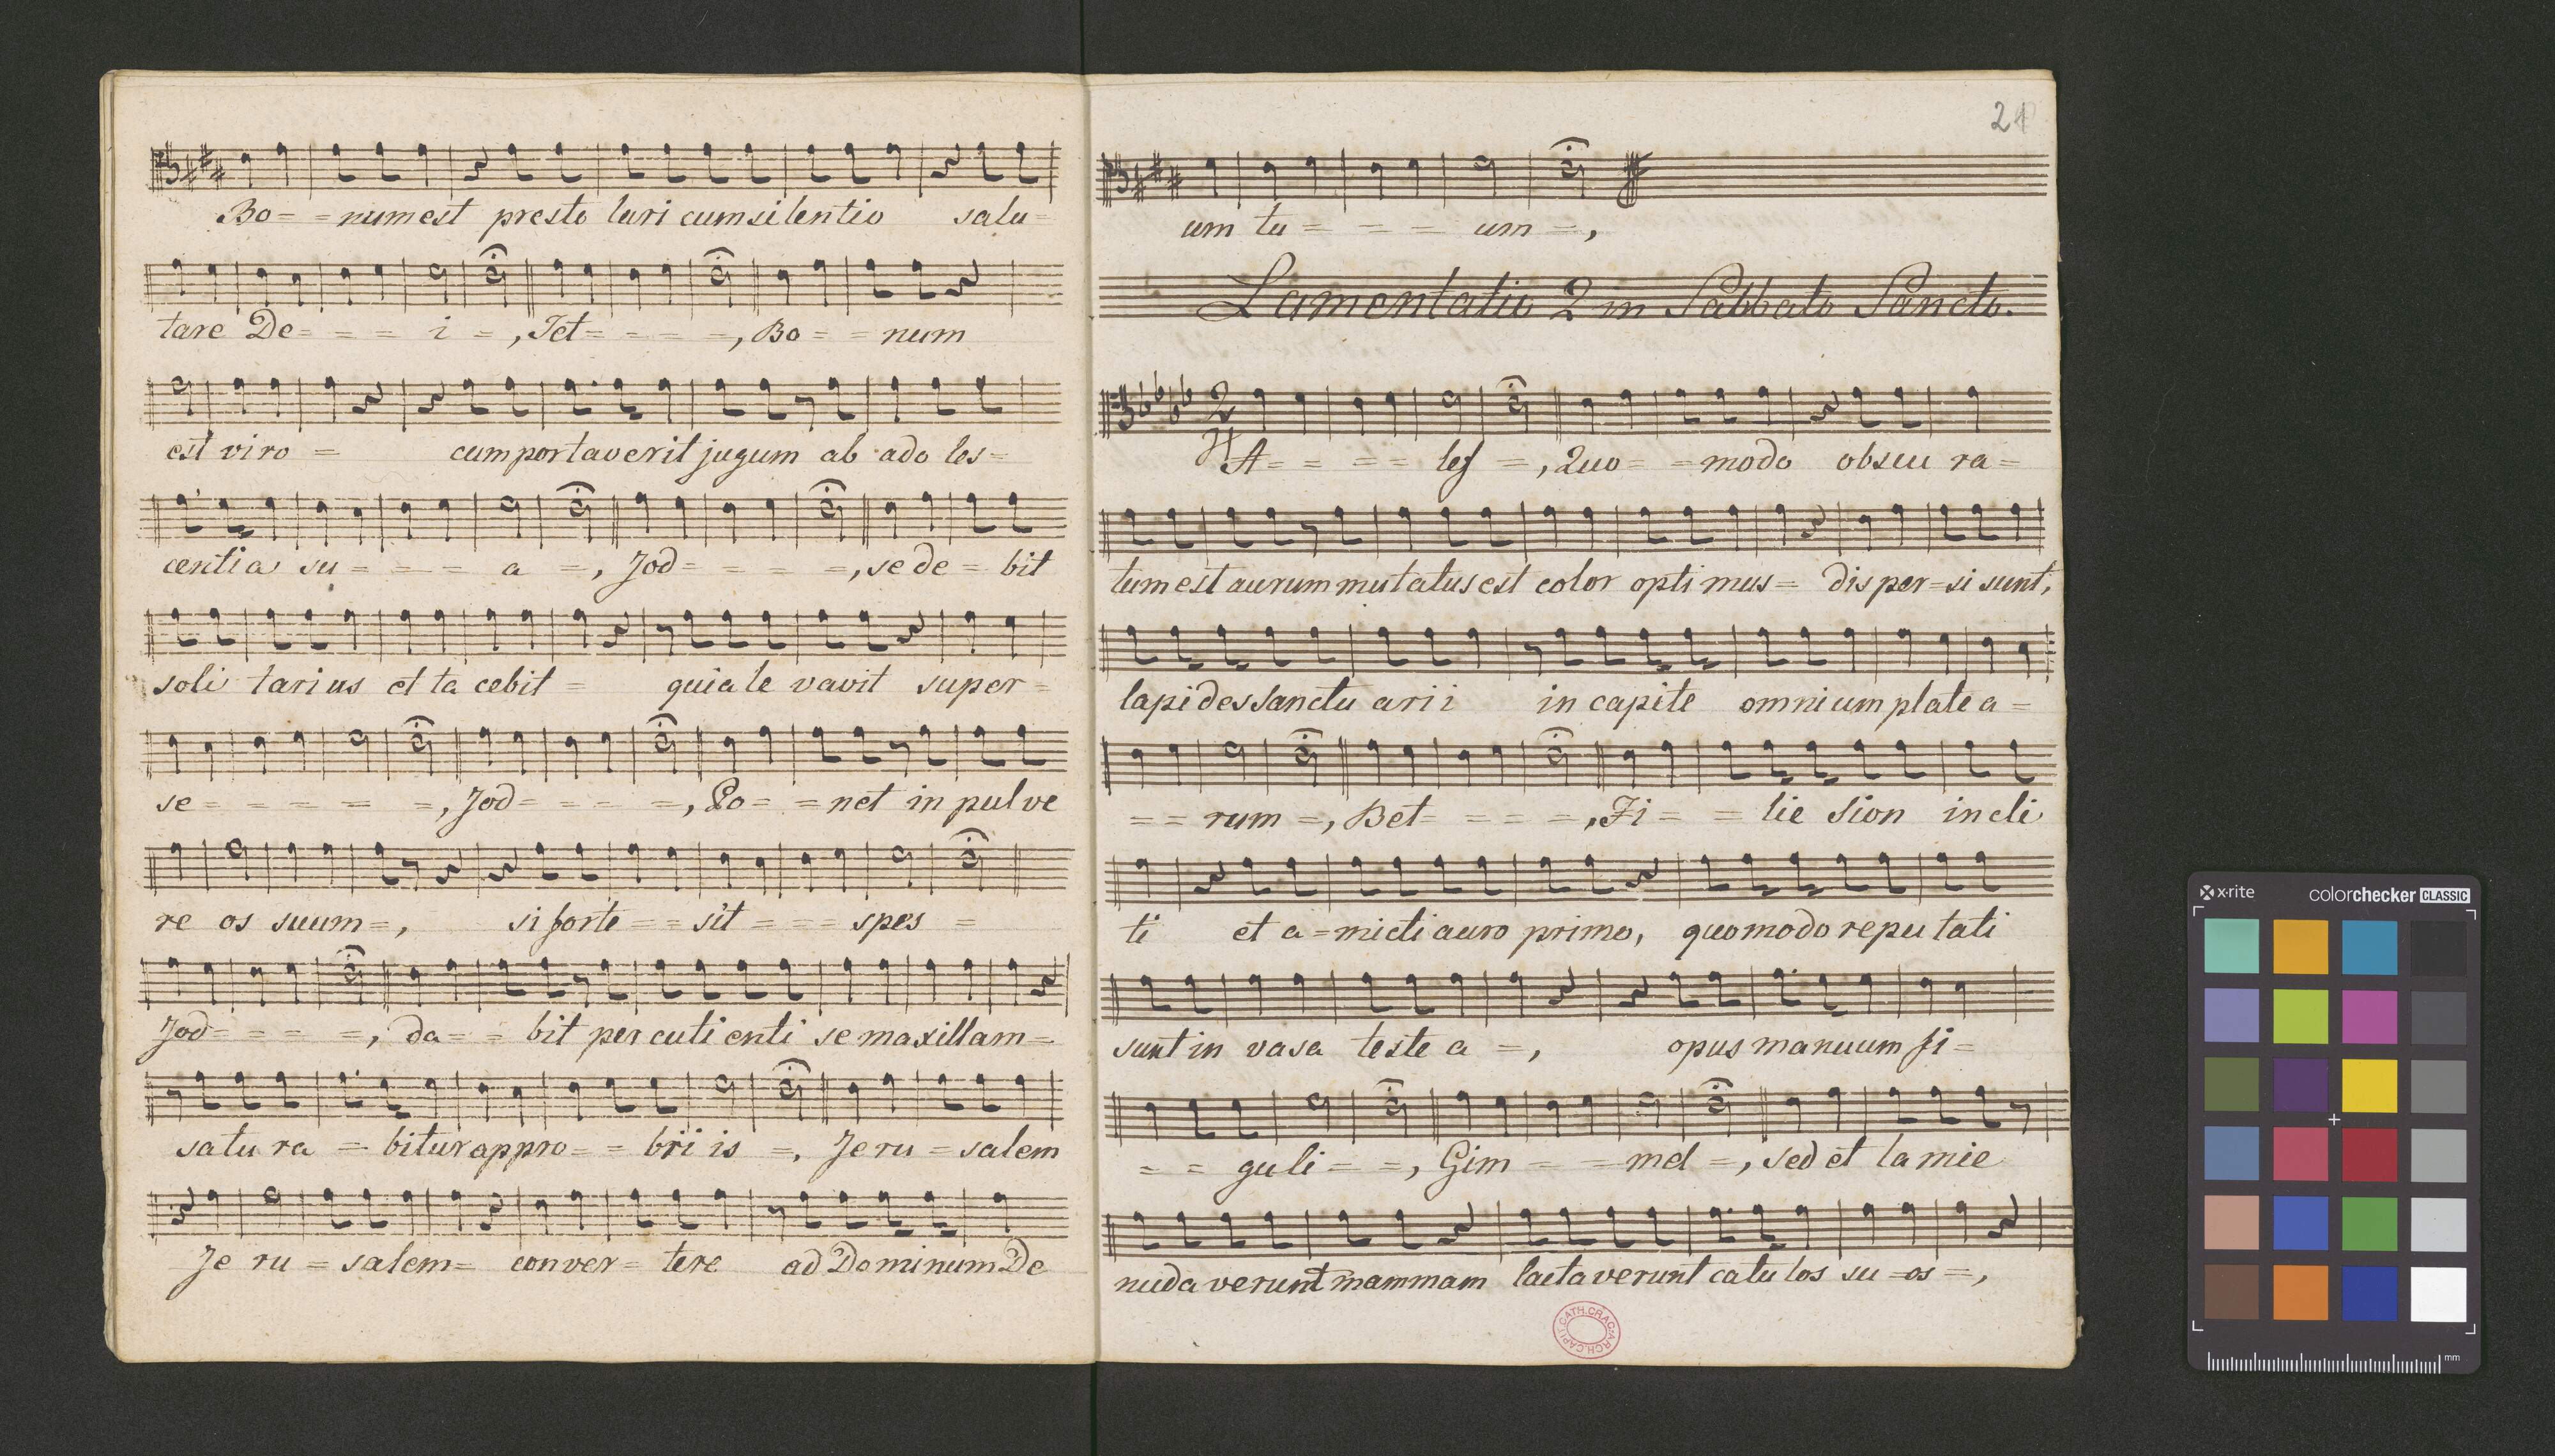 Bo= =num est presto lari cum silentio salu=
tare De= = = i =, Tet= = = =, Bo= =num
est viro = cum portaverit jugum ab ado les=
centia su= = = a =, Jod= = = =, se de= bit
soli tari us et ta cebit = quia le vavit super=
se= = = = = =, Jod= = = =, Po= =net in pul ve
re os suum=, si forte == sit = = = spes =
Jod= = = =, da= = bit per cuti enti se maxillam=
satu ra = bitur appro= = bri is =, Jeru =salem
Je ru =salem= conver= tere ad Dominum De
21
um tu = = = um =,
Lamentatio 2 in Sabbato Sancto.
2
A= = = = lef =, Quo= =modo obscu ra=
tum est aurum mutatus est color opti mus= disper=si sunt,
lapides sanctu arii in capite omnium plate a=
== rum =, Bet= = = =, Fi= = lie Sion incli
ti et a=micti auro primo, quomodo repu tati
sunt in vasa teste a =, opus manuum fi=
= = guli= =, Gim = =mel =, sed et lamie
nuda verunt mammam lacta verunt catu los su=os=,
CATH.CRAC. ARCH.CAPIT.
x-rite colorchecker CLASSIC
mm